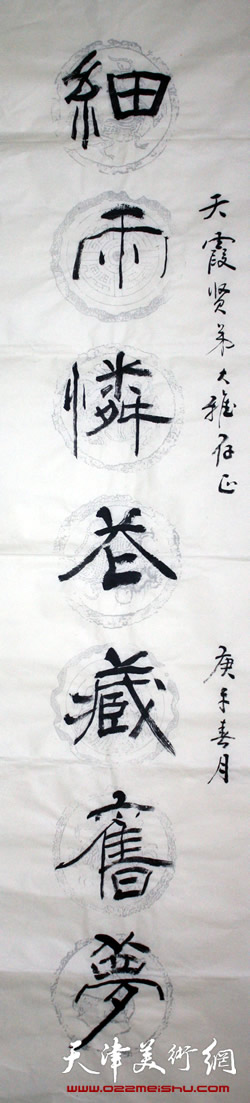 天霞贤弟大雅存正
庚午春月
細雨憐花藏舊夢
天津美術網
www.022meishu.com